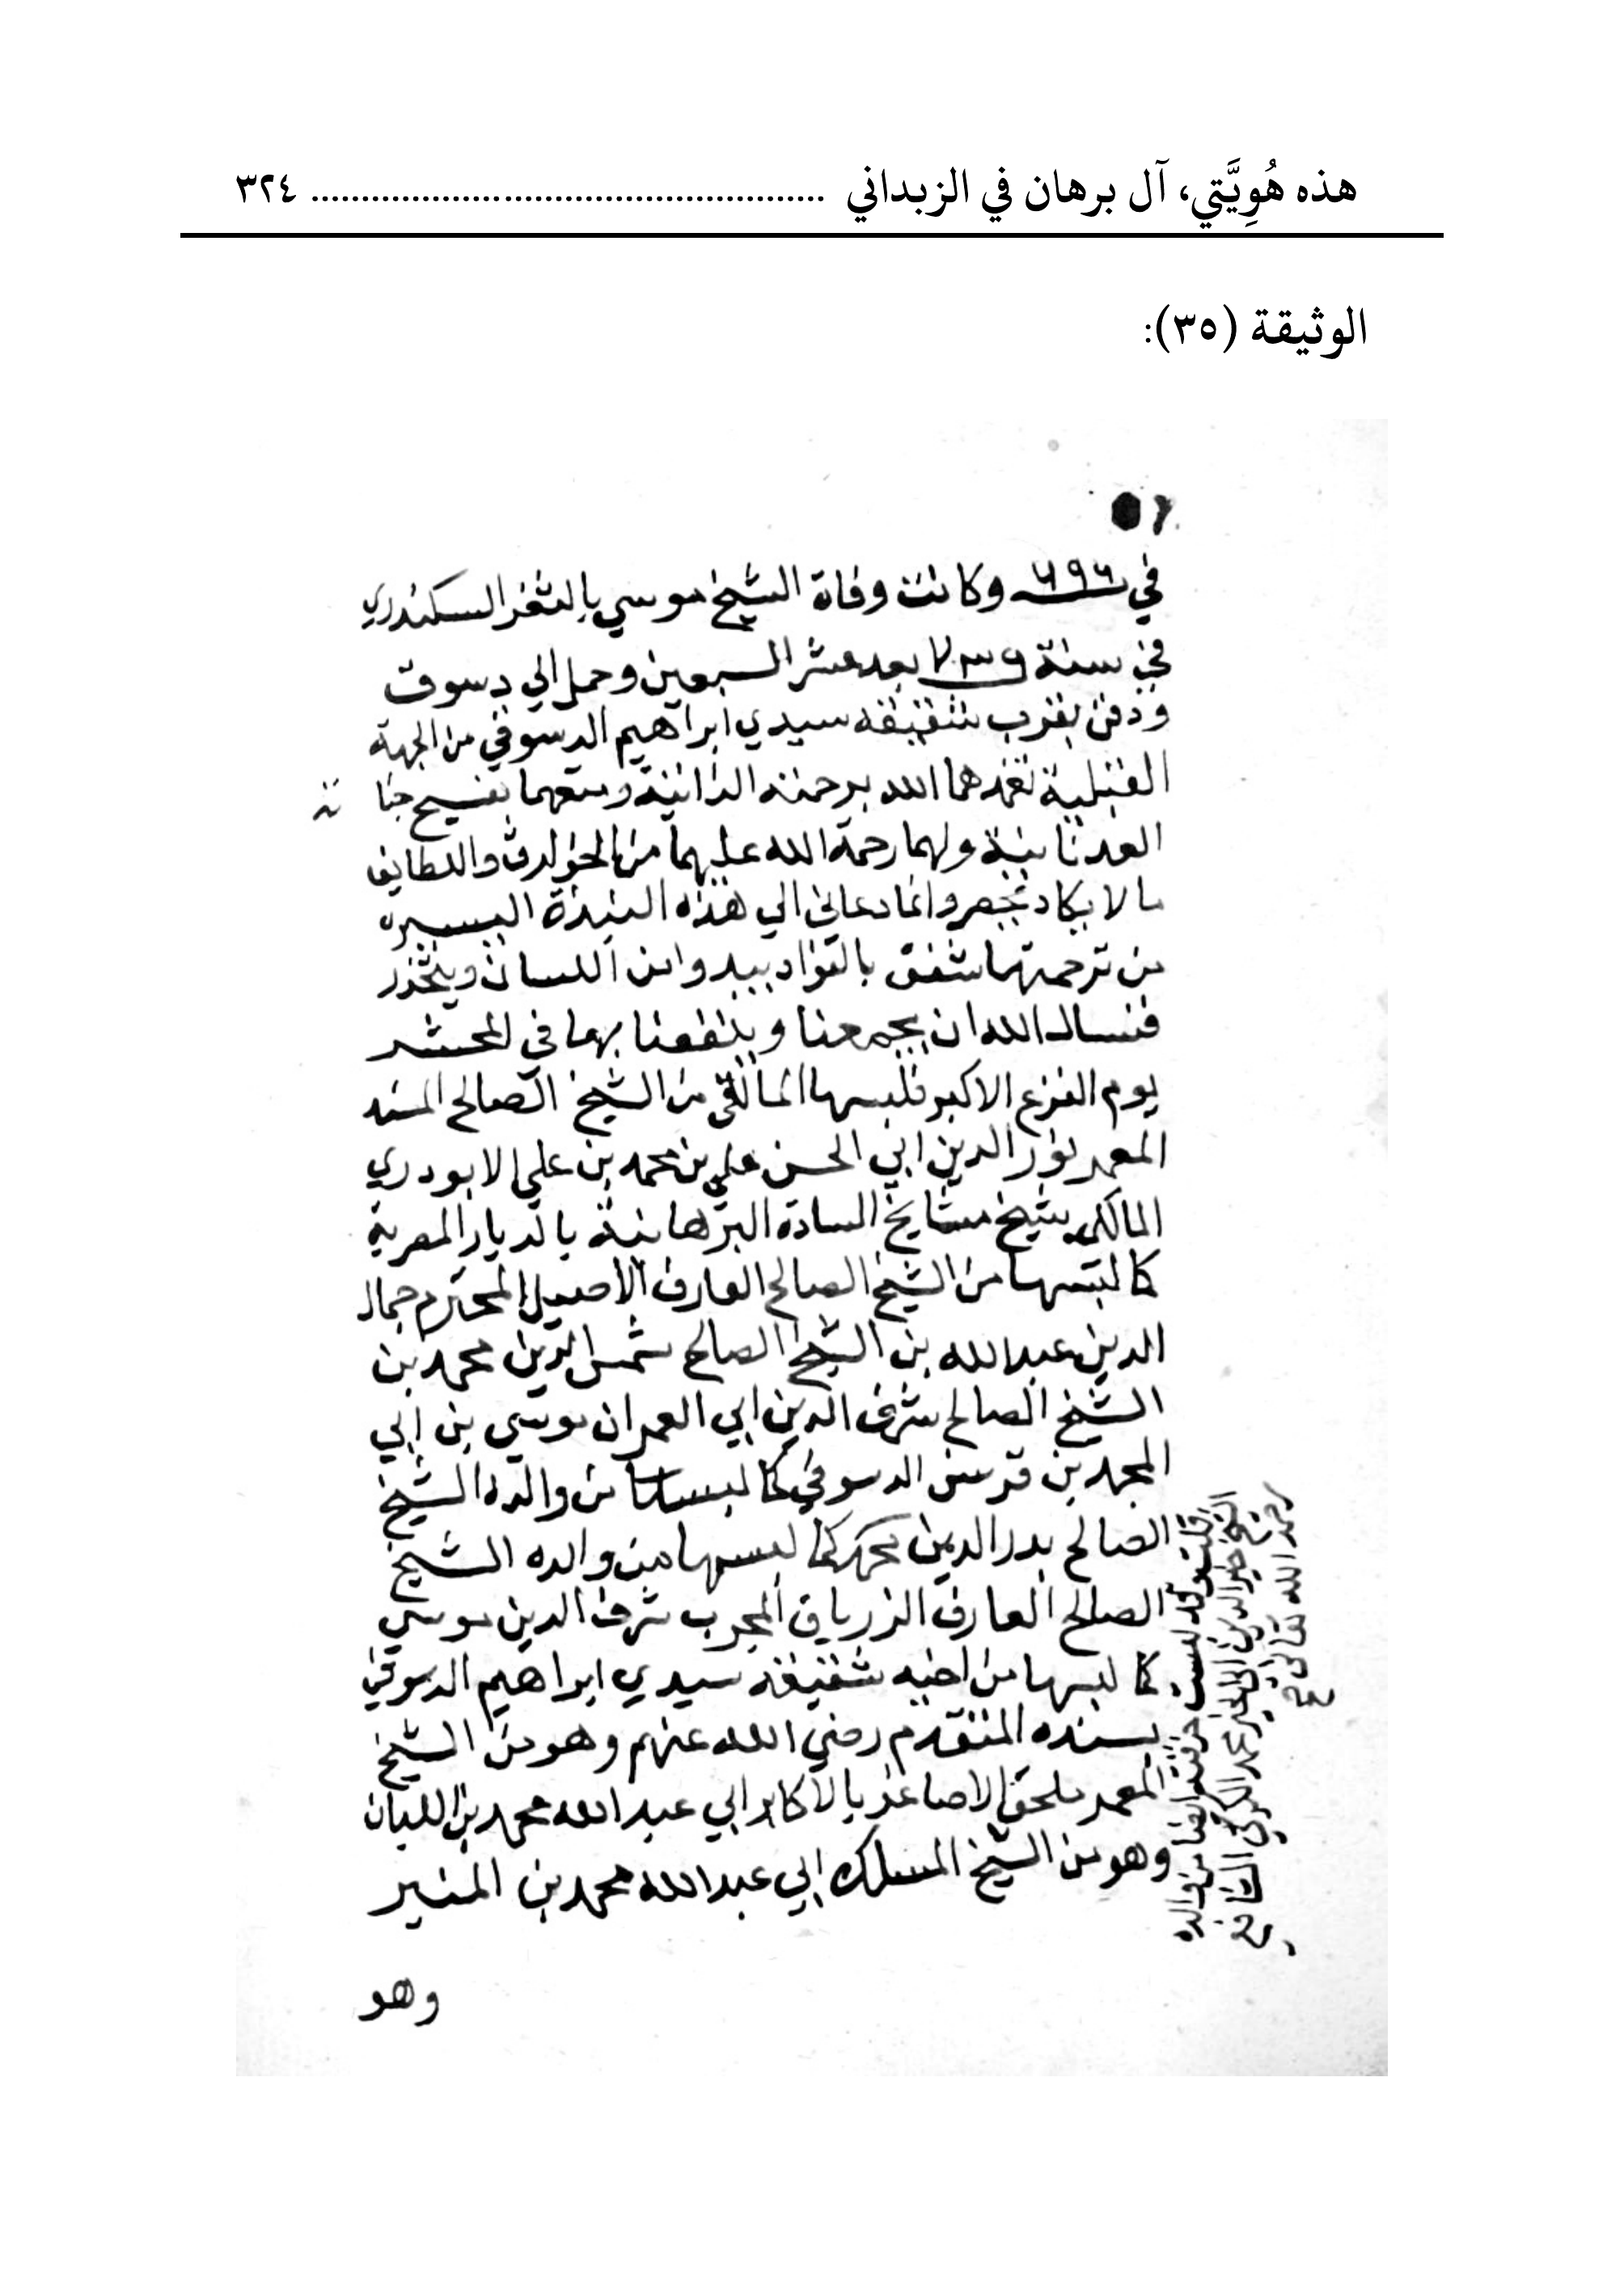 هذه هُوِيَّتي، آل برهان في الزبداني ................................................... ٣٢٤
الوثيقة (٣٥):
في ٦٩٦ وكانت وفاة الشيخ موسي بالثغر السكندري
في سنة ٧٣٩ بعد عشر السبعين وحمل الي دسوق
ودفن بقرب شقيقه سيدي ابراهيم الدسوقي من الجهة
القبلية تغمدهما الله برحمته الدانية ومتعهما بفسيح جنا ته
العدنانية ولهما رحمة الله عليهما من الخوارق واللطايف
ما لا يكاد ينحصر وانما دعاني الي هذه النبذة اليسيره
من ترجمتهما شغف بالفواد
فنسال الله ان يجمعنا وينفعنا بهما في المحشر
يوم الفزع الاكبر فلبسها المالقي من الشيخ الصالح المسند
المعمر نور الدين ابي الحسن علي بن محمد بن علي الابودري
المالكي شيخ مشايخ السادة البرهانية بالديار المصرية
كما لبسها من الشيخ الصالح العارف الأصيل المحترم جمال
الدين عبد الله بن الشيخ الصالح شمس الدين محمد بن
الشيخ الصالح شرف الدين ابي العمران موسي بن ابي
المجد بن قريش الدسوقي كما لبسها من والده الشيخ
الصالح بدر الدين محمد كما لبسها من والده الشيخ
الصالح العارف الترياق المجرب شرف الدين موسي
كما لبسها من اخيه شقيقه سيدي ابراهيم الدسوقي
بسنده المتقدم رضي الله عنهم وهو من الشيخ
المعمر ملحق الاصاغر بالاكابر ابي عبد الله محمد بن اللبان
وهو من الشيخ المسلك ابي عبد الله محمد بن المنير
وهو
قلت وقد لبست خرقته ايضا من والده
الشيخ خير الدين ابي الخير محمد الكركي الشافعي
رحمه الله تعالى